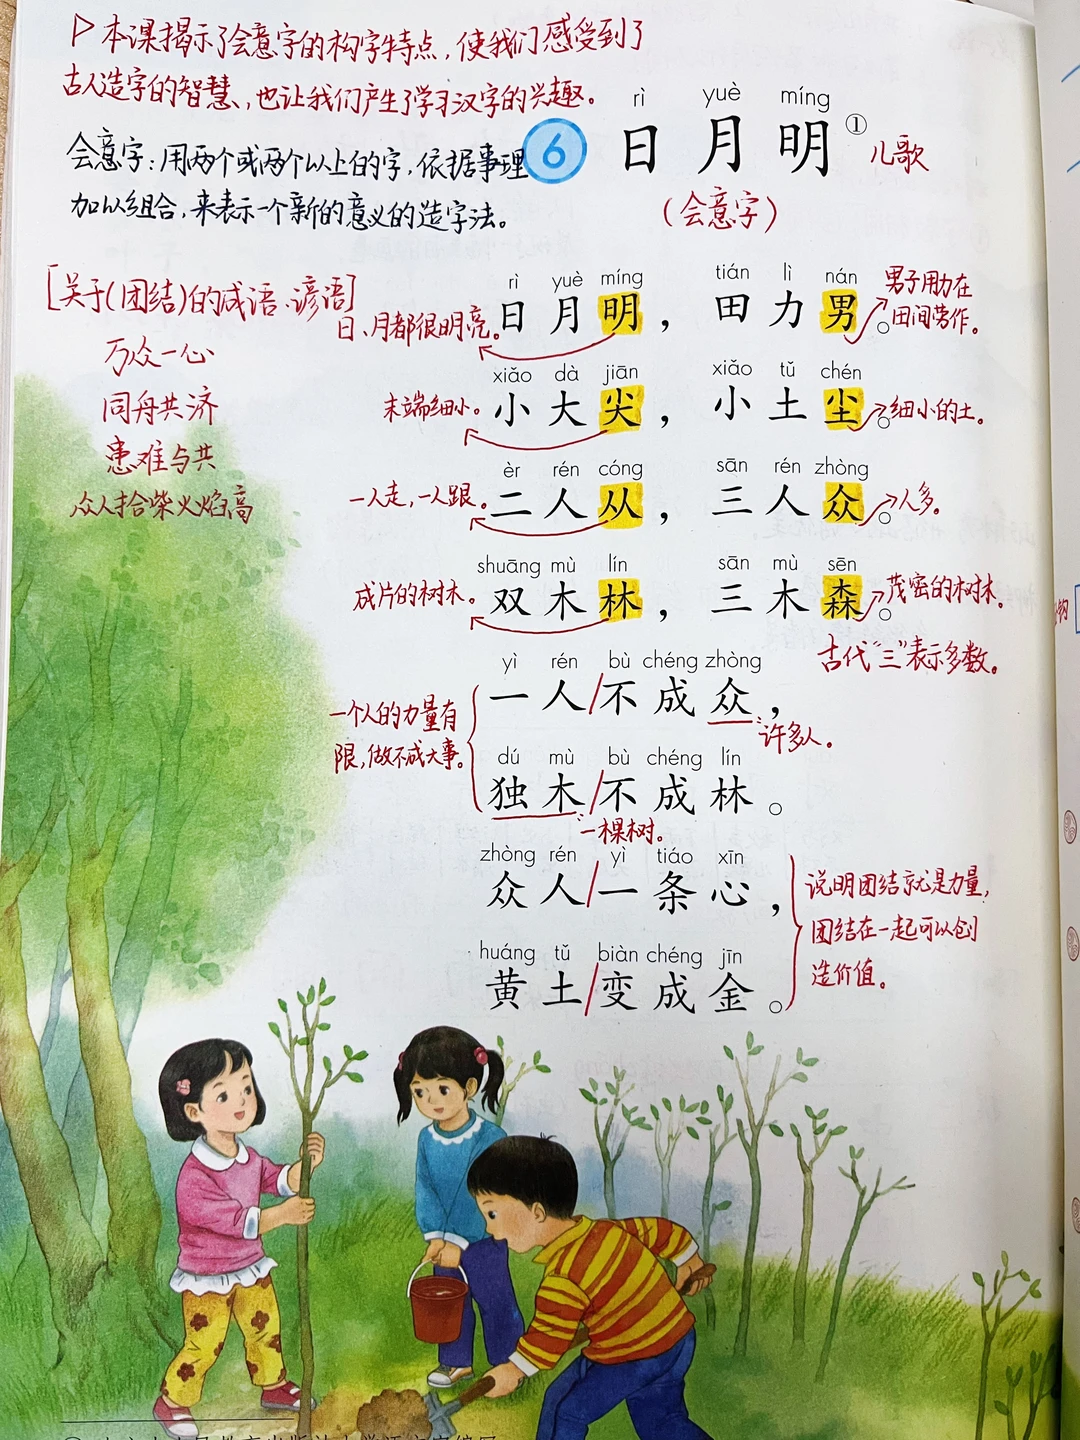 ▷本课揭示了会意字的构字特点，使我们感受到了
古人造字的智慧、也让我们产生了学习汉字的兴趣。
会意字：用两个或两个以上的字，依据事理
加以组合，来表示一个新的意义的造字法。
6
rì yuè míng
日月明① 儿歌
（会意字）
[关于(团结)的成语、谚语]
万众一心
同舟共济
患难与共
众人拾柴火焰高
rì yuè míng tián lì nán
日月明，田力男。
日、月都很明亮。
男子用力在
田间劳作。
xiǎo dà jiān xiǎo tǔ chén
小大尖，小土尘。
末端细小。
细小的土。
èr rén cóng sān rén zhòng
二人从，三人众。
一人走，一人跟。
人多。
shuāng mù lín sān mù sēn
双木林，三木森。
成片的树木。
茂密的树木。
古代“三”表示多数。
yì rén bù chéng zhòng
一人/不成众，
许多人。
一个人的力量有
限，做不成大事。
dú mù bù chéng lín
独木/不成林。
一棵树。
zhòng rén yì tiáo xīn
众人/一条心，
huáng tǔ biàn chéng jīn
黄土/变成金。
说明团结就是力量，
团结在一起可以创
造价值。